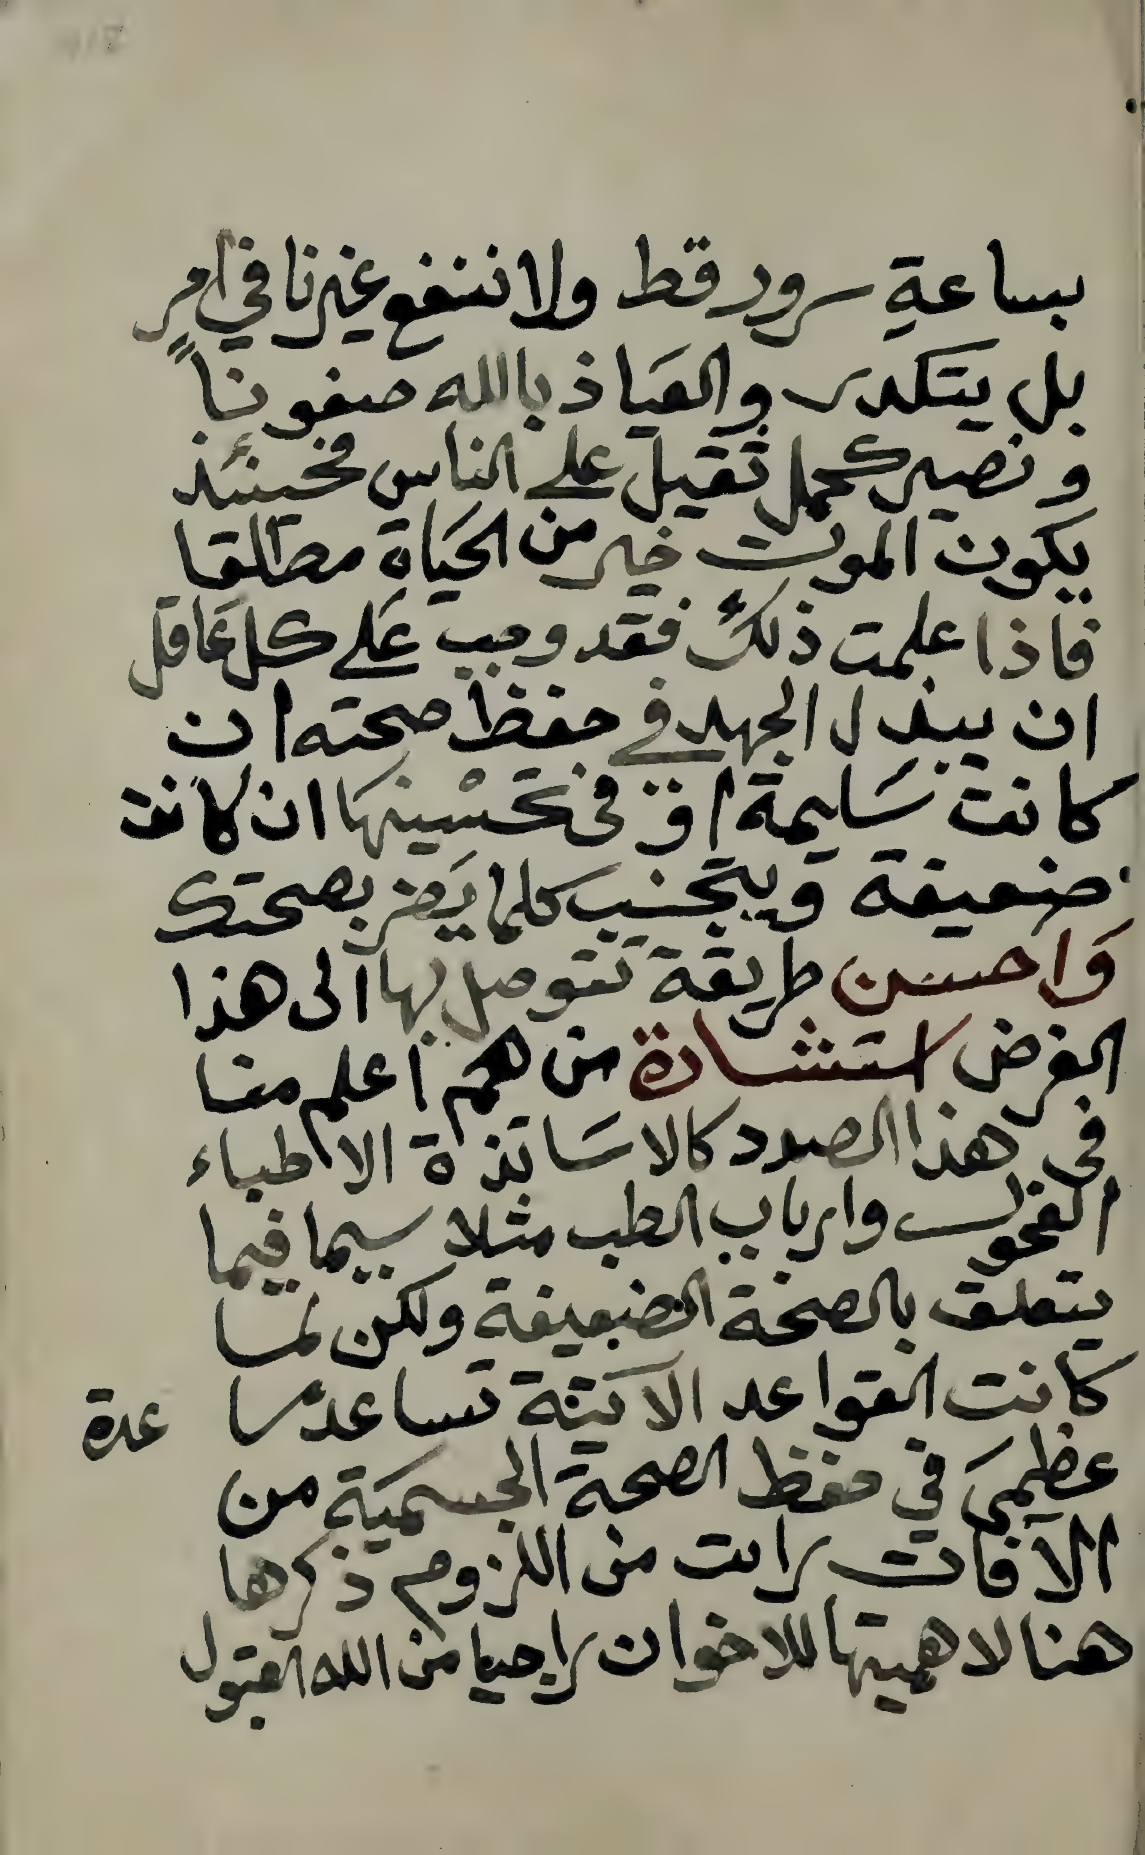 بساعةِ سرور قط ولا ننفع غيرنا في امرٍ
بل يتكدر والعياذ بالله صفونا
ونصير كحمل ثقيل على الناس فحينئذ
يكون الموت خير من الحياة مطلقا
فاذا علمت ذلك فقد وجب على كل عاقل
ان يبذل الجهد في حفظ صحته ان
كانت سليمة او في تحسينها ان كانت
ضعيفة ويتجنب كلما يضر بصحتك
واحسن طريقة تتوصل بها الى هذا
الغرض استشارة من هم اعلم منا
في هذا الصدد كالاساتذة الاطباء
الفحول وارباب الطب مثلا سيما فيما
يتعلق بالصحة الضعيفة ولكن لما
كانت القواعد الآتية تساعد مساعدة
عظيمى في حفظ الصحة الجسمية من
الآفات رايت من اللزوم ذكرها
هنا لاهميتها للاخوان راجيا من الله القبول